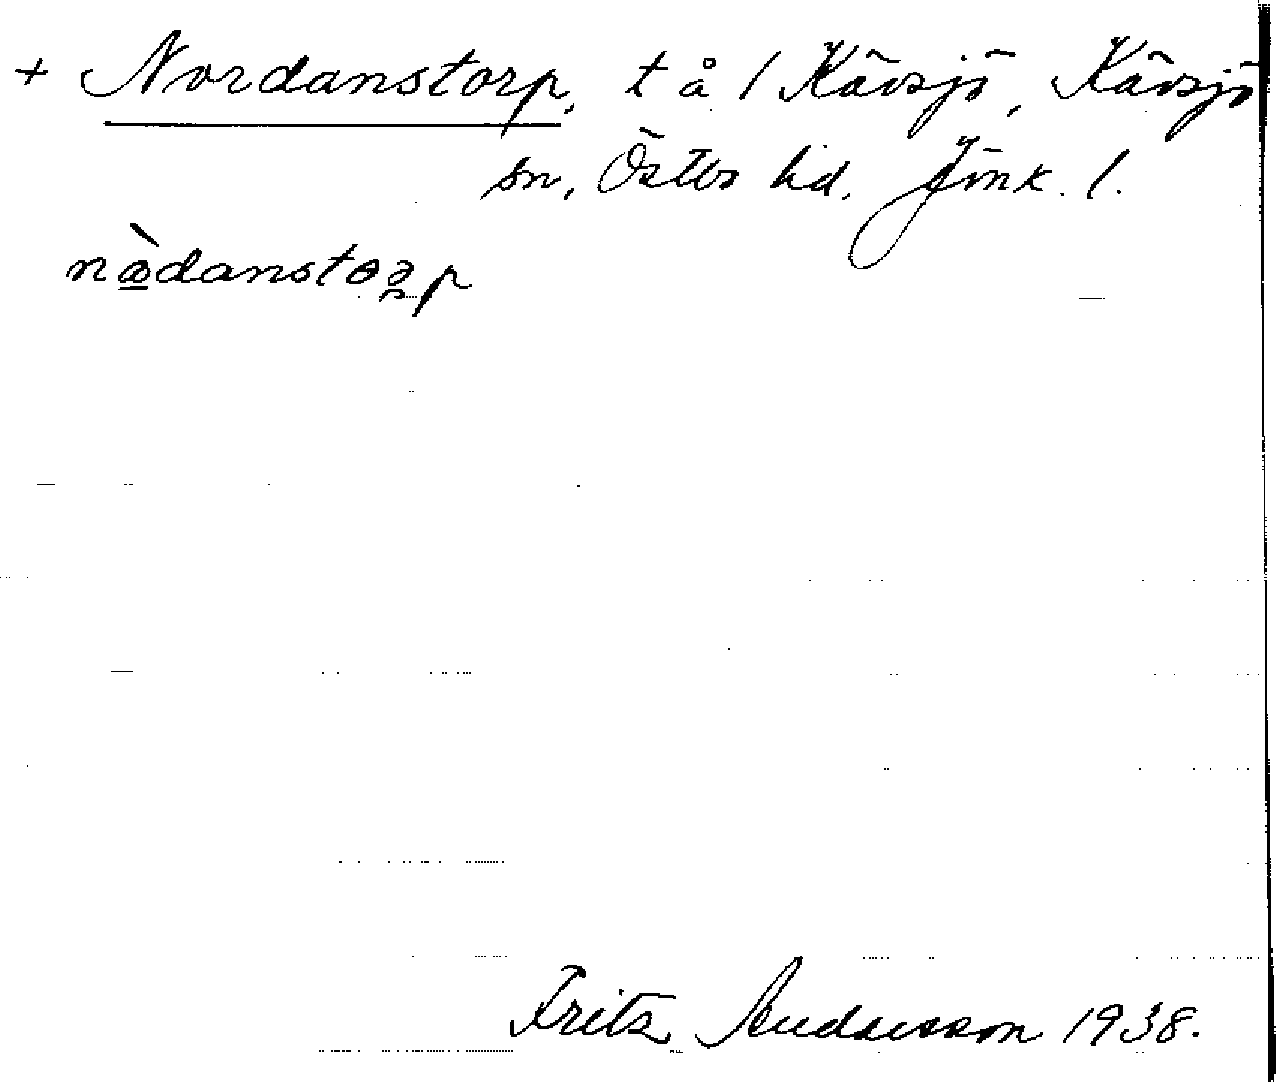 + Nordanstorp, t å 1 Kävsjö, Kävsjö
sn, Östbo hd. Jönk. l.
Fritz Andersson 1938.